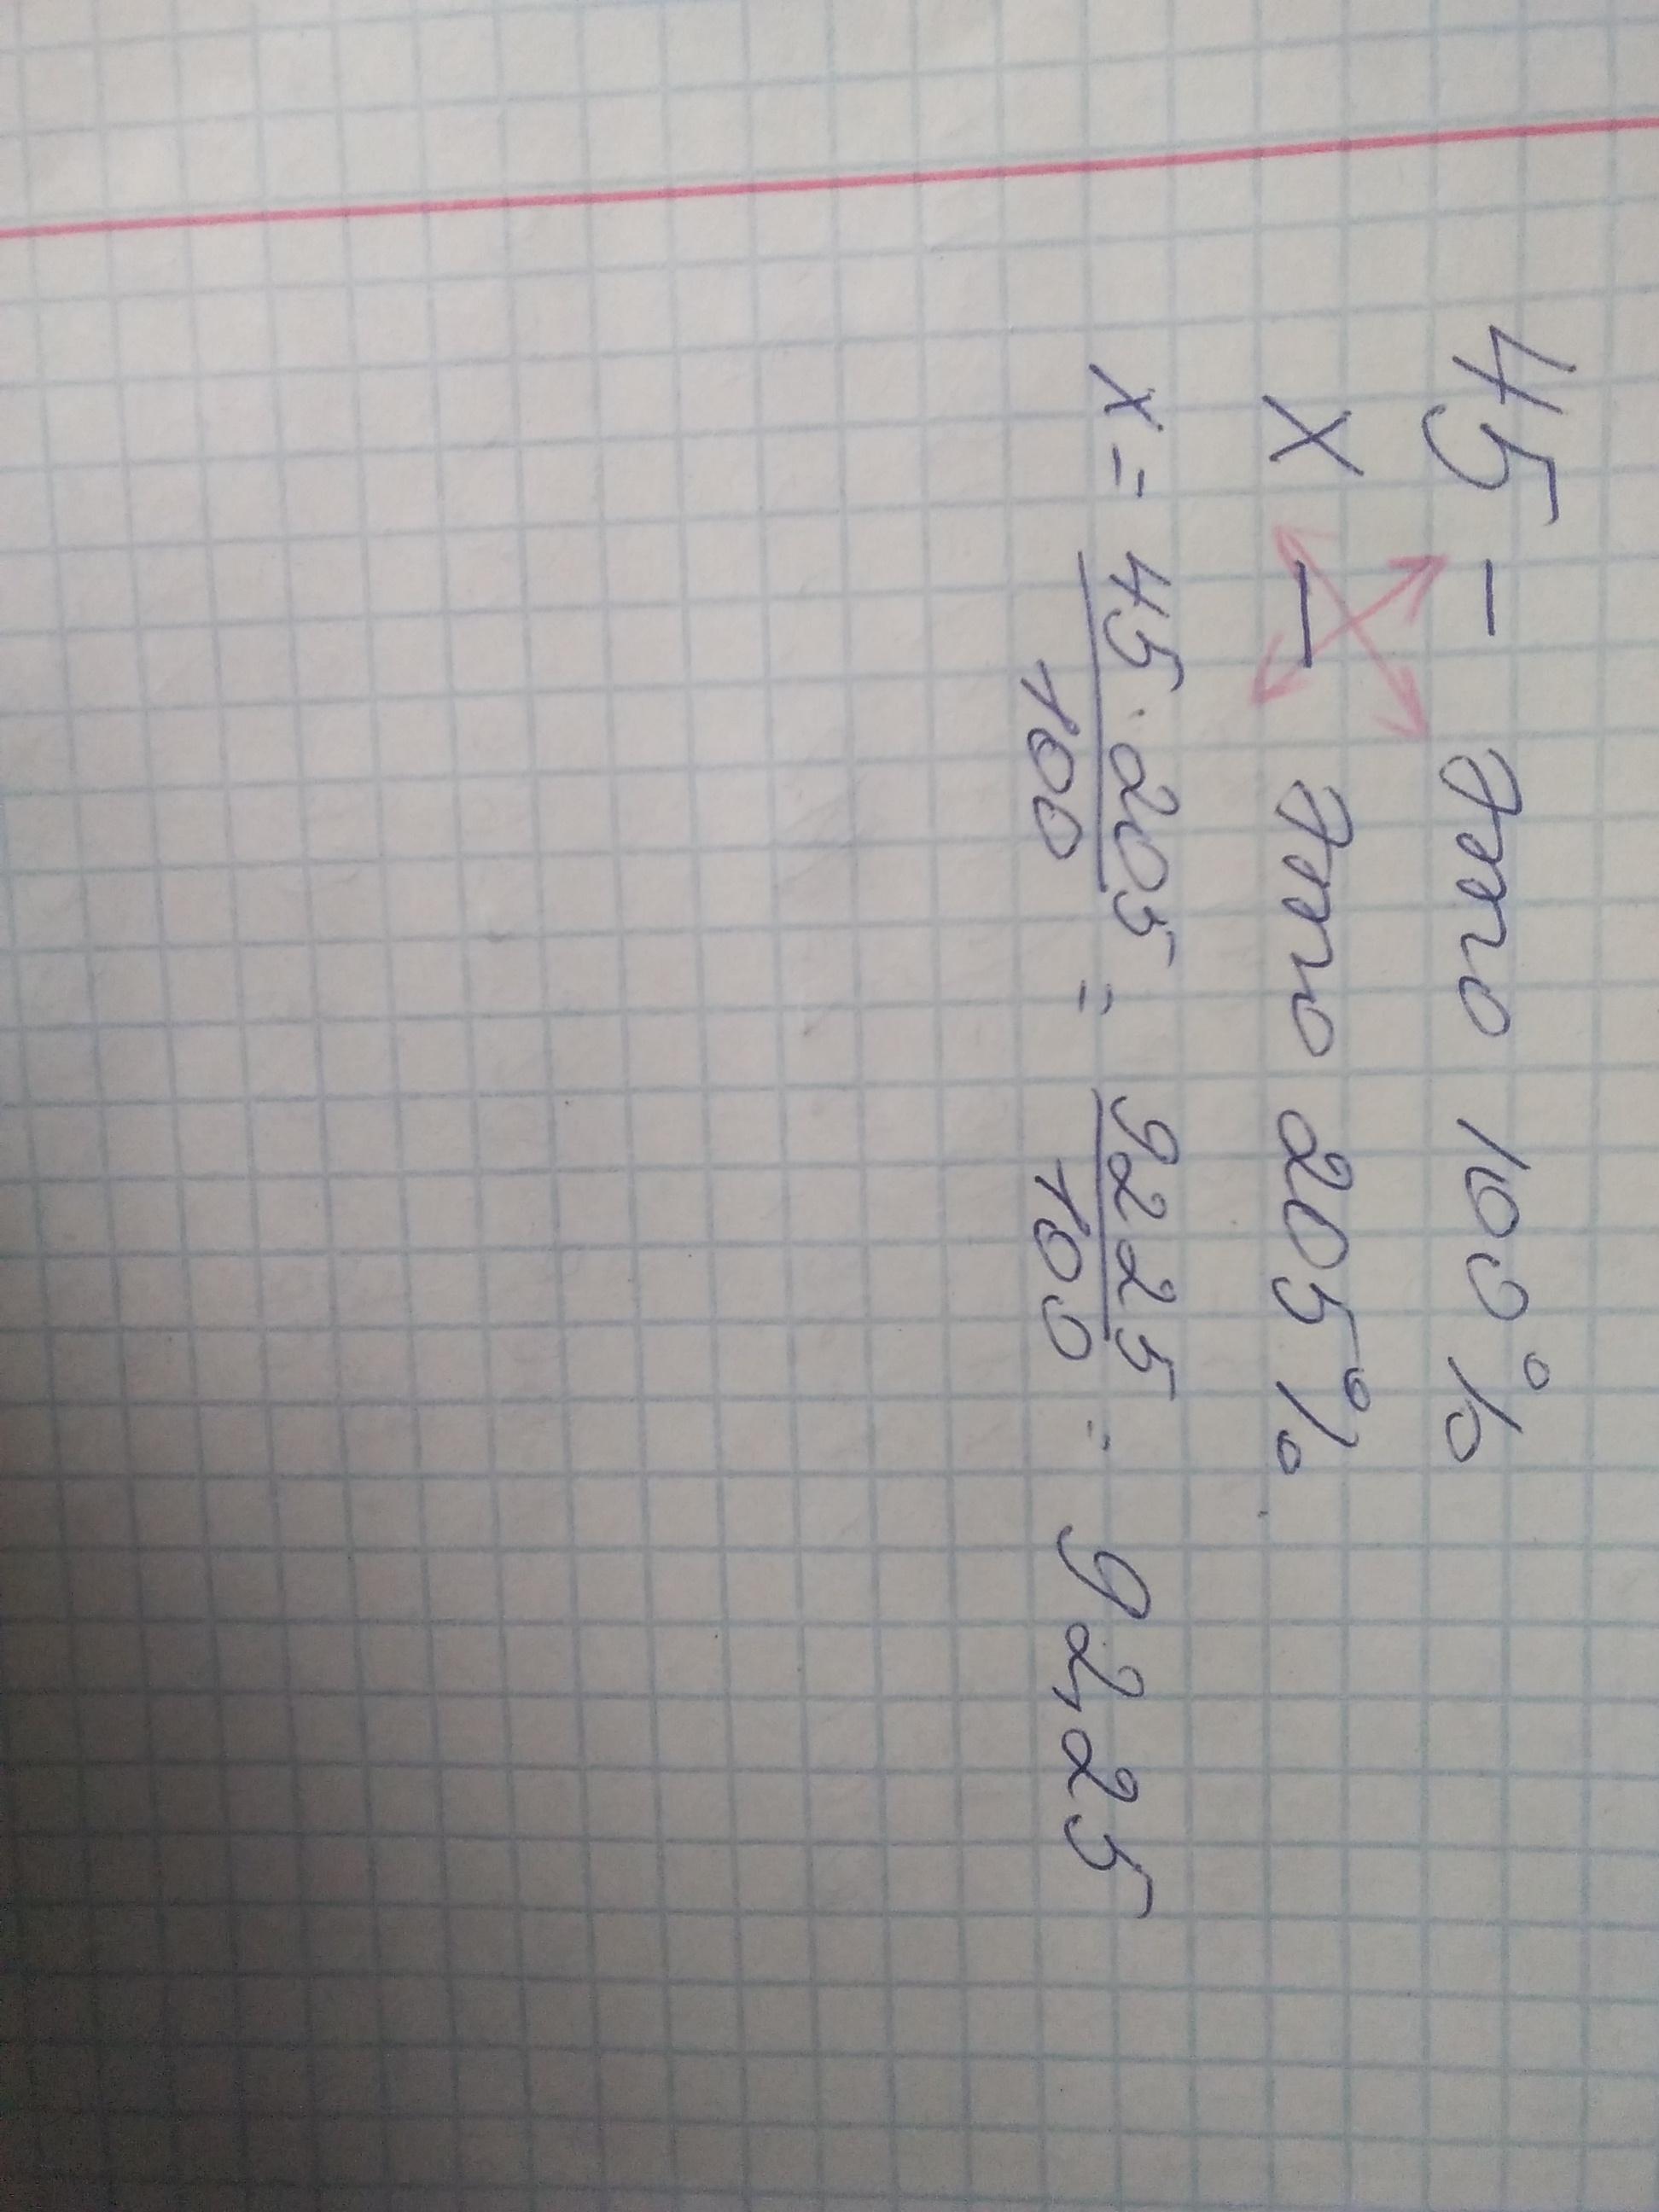 45 - это 100%
x - это 205%
x = 45·205/100 = 9225/100 = 92,25